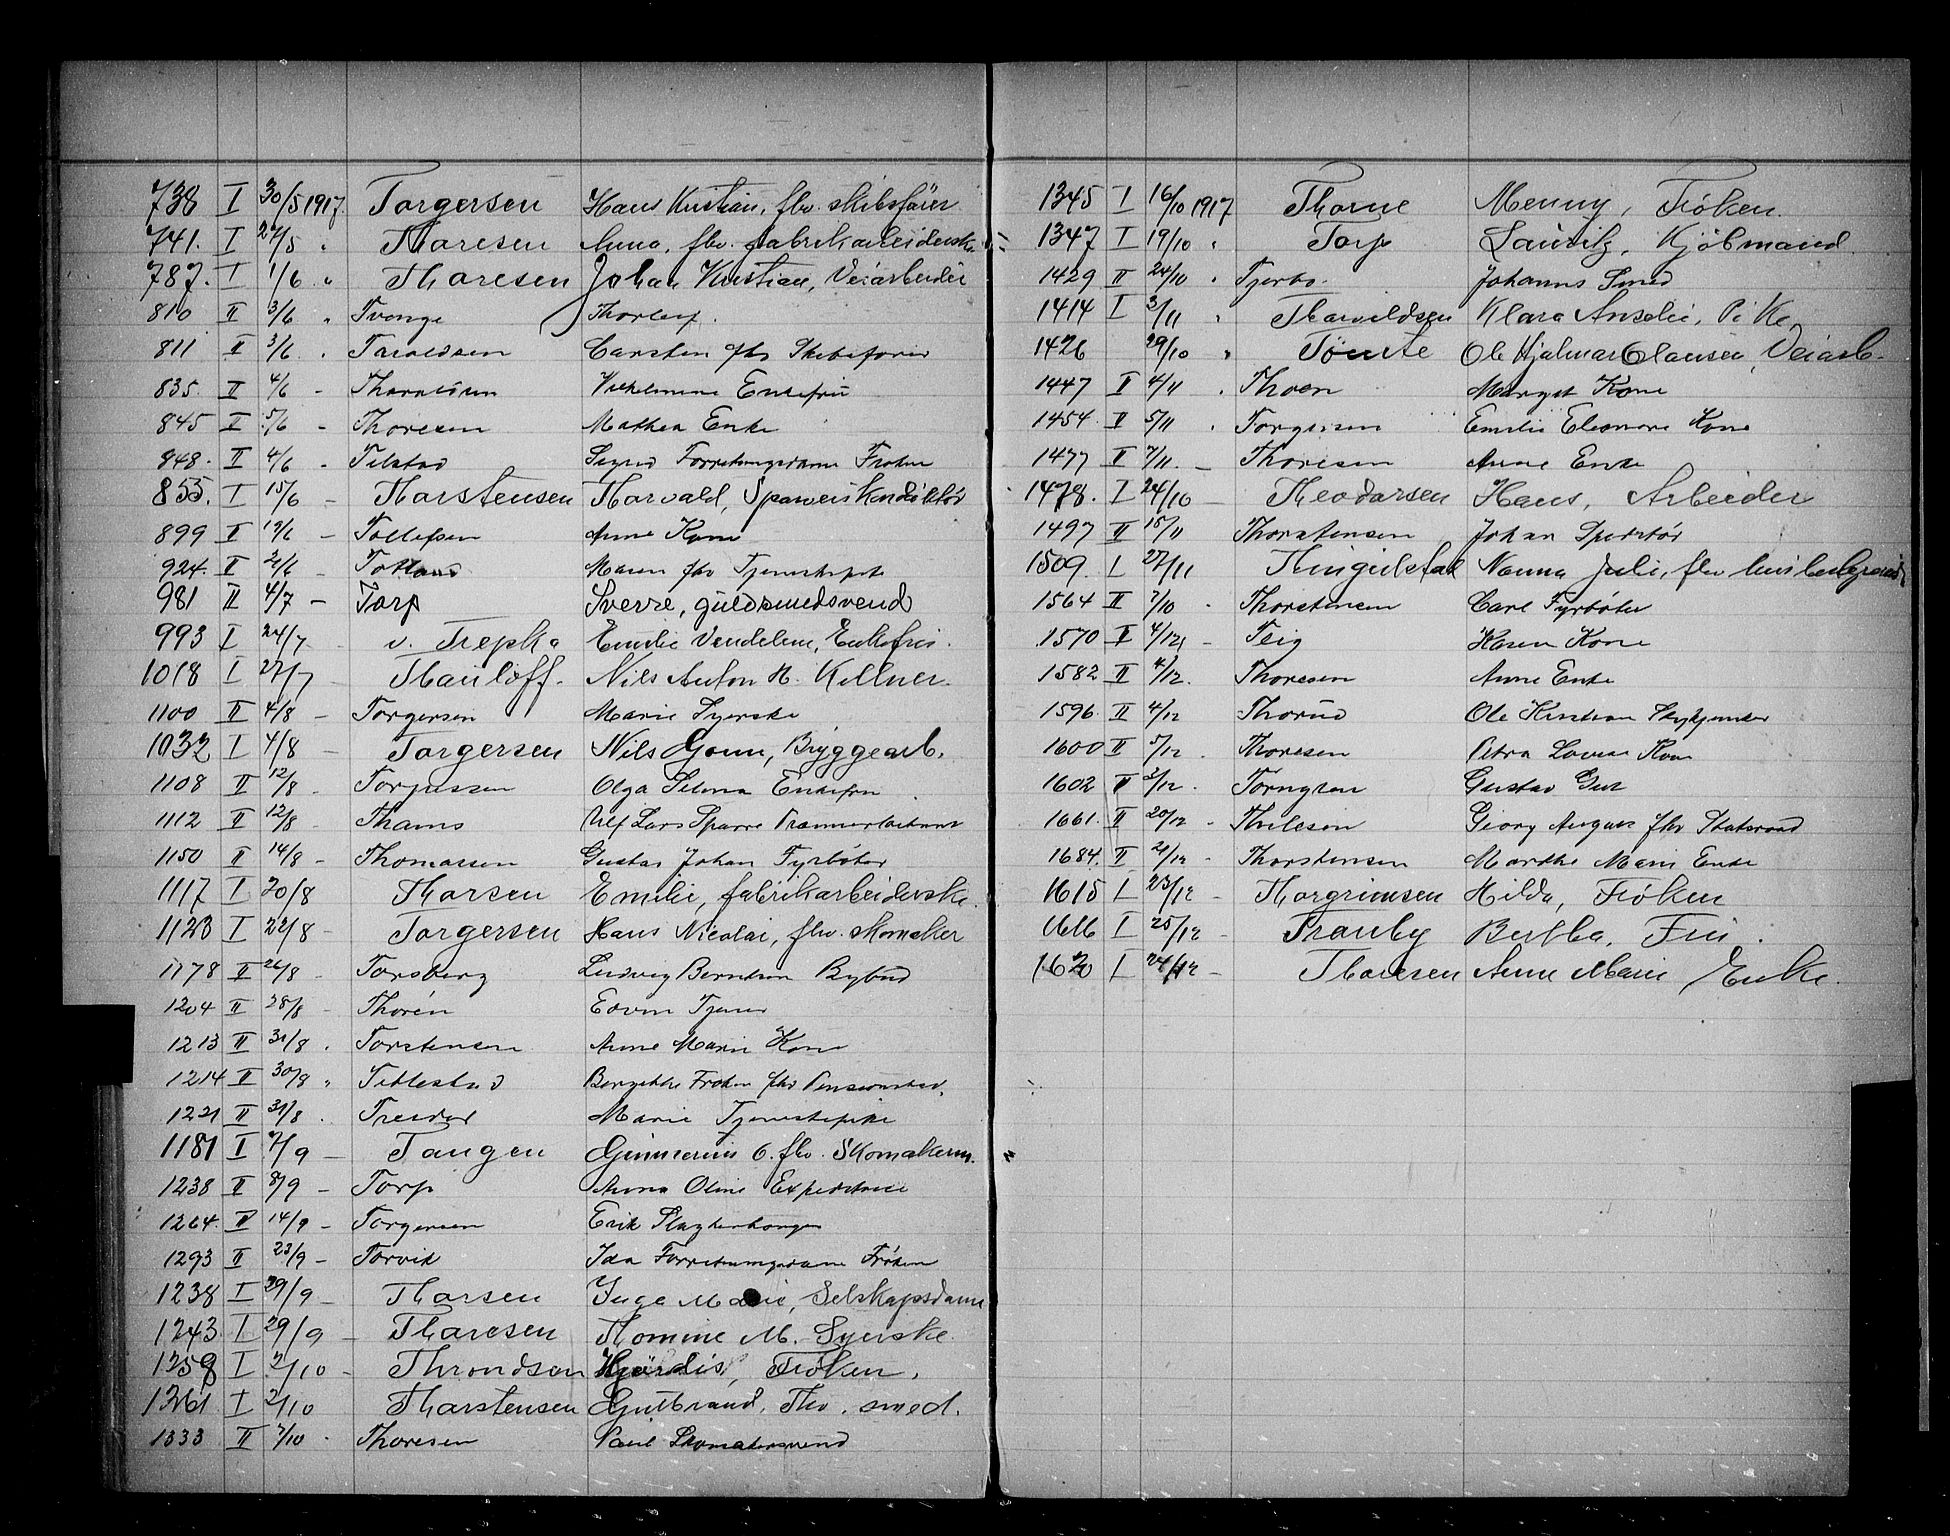 738 I 30/5 1917. Torgersen Hans Kristian, fhv. skibsfører
741. I 27/5 " Thoresen Anna, fhv. fabrikarbeiderske
787. I 1/6 " Thoresen Johan Kristian, Veiarbeider
810 II 3/6 " Tvenge Thorleif.
811 II 3/6 " Taraldsen Carsten fhv Skibsfører
835. II 4/6 - Thoraldsen Vilhelmine Enkefru
845 II 5/6 - Thoresen Mathea Enke
848. II 4/6 - Tilstad Sigrid Forretningsdame Frøken
855. I 15/6 - Thorstensen Thorvald, Sporveiskonduktør
899 II 19/6 - Tollefsen Anne Kone
924. II 21/6 - Totland Maren fhv Tjenestepike
981 II 4/7 - Torp Sverre, guldsmedsvend
993 I 24/7 - v. Trepka Emilie Vendelene, Enkefru.
1018 I 27/7 Thauloff. Nils Anton H. Kellner.
1100 II 4/8 - Torgersen Marie Syerske
1032 I 4/8 - Torgersen Nils Gunn, Bryggearb.
1108 II 12/8 - Torjussen Olga Selma Enkefru
1112 II 12/8 - Thams Ulf Lars Sparre
1150 II 14/8 - Thomassen Gustav Johan Fyrbøter
1117 I 20/8 Thorsen Emilie, fabrikarbeiderske.
1123 I 22/8 - Torgersen Hans Nicolai, fhv. skomaker
1178 II 26/8 - Torsberg Ludvig Berntsen Bybud
1204 II 28/8 - Thorén Edvin Tjener
1213 II 31/8 . Torstensen Anne Marie Kone
1214 II 30/8 " Titlestad Bergitte Frøken fhv
1221 II 31/8 . Tresder Marie Tjenestepike
1181 I 7/9 - Tangen Gunnerius O. fhv. Skomakerm.
1238 II 8/9 - Torp Anna Oline Expeditrice
1264. II 14/9 - Torgersen Erik
1293 II 23/9 - Torvik Ida Forretningsdame Frøken
1238 I 29/9 - Thorsen Inga Marie, Selskapsdame
1243 I 29/9 - Thoresen Thomine M. Syerske
1258 I 2/10 - Throndsen Hjørdis, Frøken.
1261 I 2/10 Thorstensen Gulbrand, fhv. smed.
1333 II 7/10 . Thoresen Paul Skomakersvend
1345 I 16/10 1917 Thorne Menny, Frøken.
1347 I 19/10 " Torp Lauritz, Kjøbmand
1429 II 24/10 " Tjerbo. Johannes Smed
1414 I 3/11 " Tharaldsen Klara Anselie, Pike
1426 29/10 " Tømte Ole Hjalmar Clausen, Veiarb.
1447 II 4/11 . Thoen Margit Kone
1454 II 5/11 . Torgersen Emilie Eleonore Kone
1477 II 7/11. - Thoresen Anne Enke
1478. I 24/10 - Theodorsen Hans, Arbeider
1497 II 15/11 Thorstensen Johan Speditør
1509. I 27/11 Thingulstad Nanna Julie, fhv husbestyrerinde
1564 II 7/10 . Thorstensen Carl Fyrbøter
1570 II 4/12 - Teig Karen Kone
1582 II 4/12. Thoresen Anne Enke
1596. II 4/12 Thorud Ole Kristian
1600 II 5/12 . Thoresen Petra Lovise Kone
1602 II 2/12 . Torngren Gustav Gut
1661. II 20/12 - Thilesen Georg August fhv Statsraad
1684. II 21/12 - Thorstensen Marthe Marie Enke
1615 I 23/12 - Thorgrimsen Hilda, Frøken
1616 I 25/12 - Tranby Bertha, Fru.
1620 I 24/12 - Thoresen Anne Marie Enke.